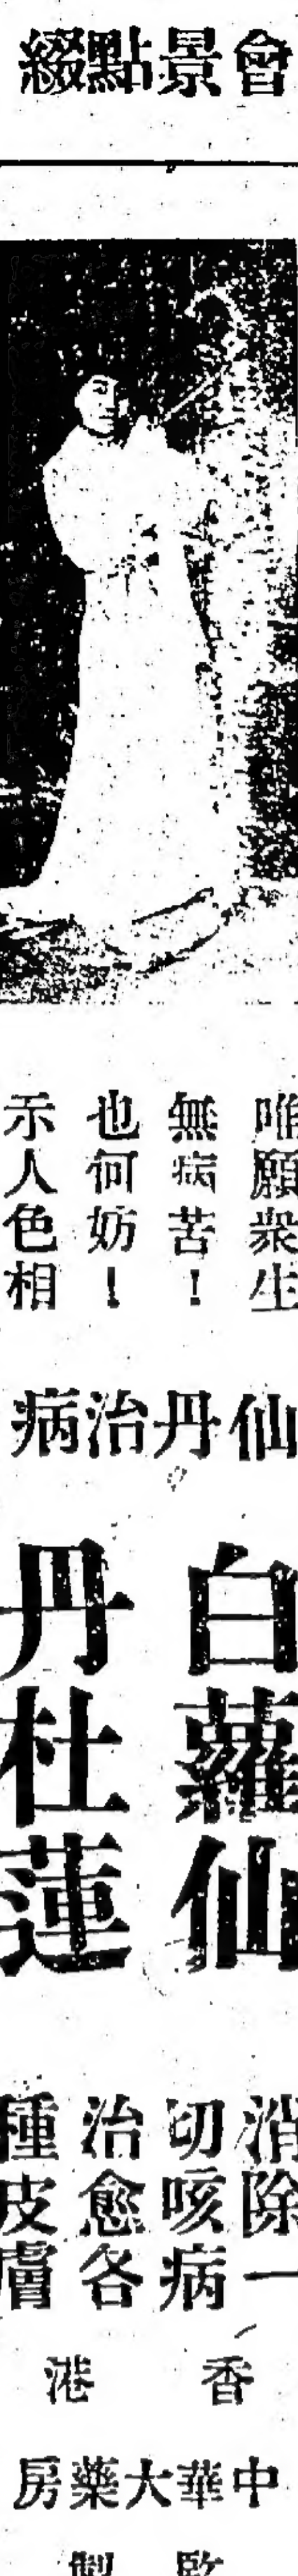 會景點綴
唯願衆生
無病苦！
也何妨！
示人色相
仙丹治病
白蘿仙
丹杜蓮
消除一
切咳病
治愈各
種皮膚
香港
中華大藥房